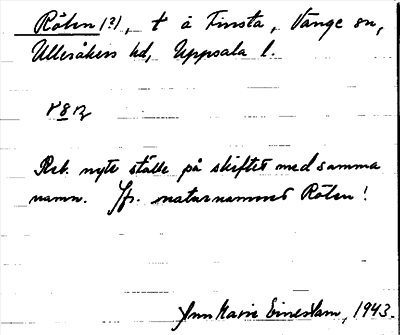 Rölen (?), t å Finsta, Vänge sn,
Ulleråkers hd, Uppsala l.
Reb. nytt ställe på skiftet med samma
namn. Jfr. naturnamnet Rölen!
Ann Marie Einestam, 1943.